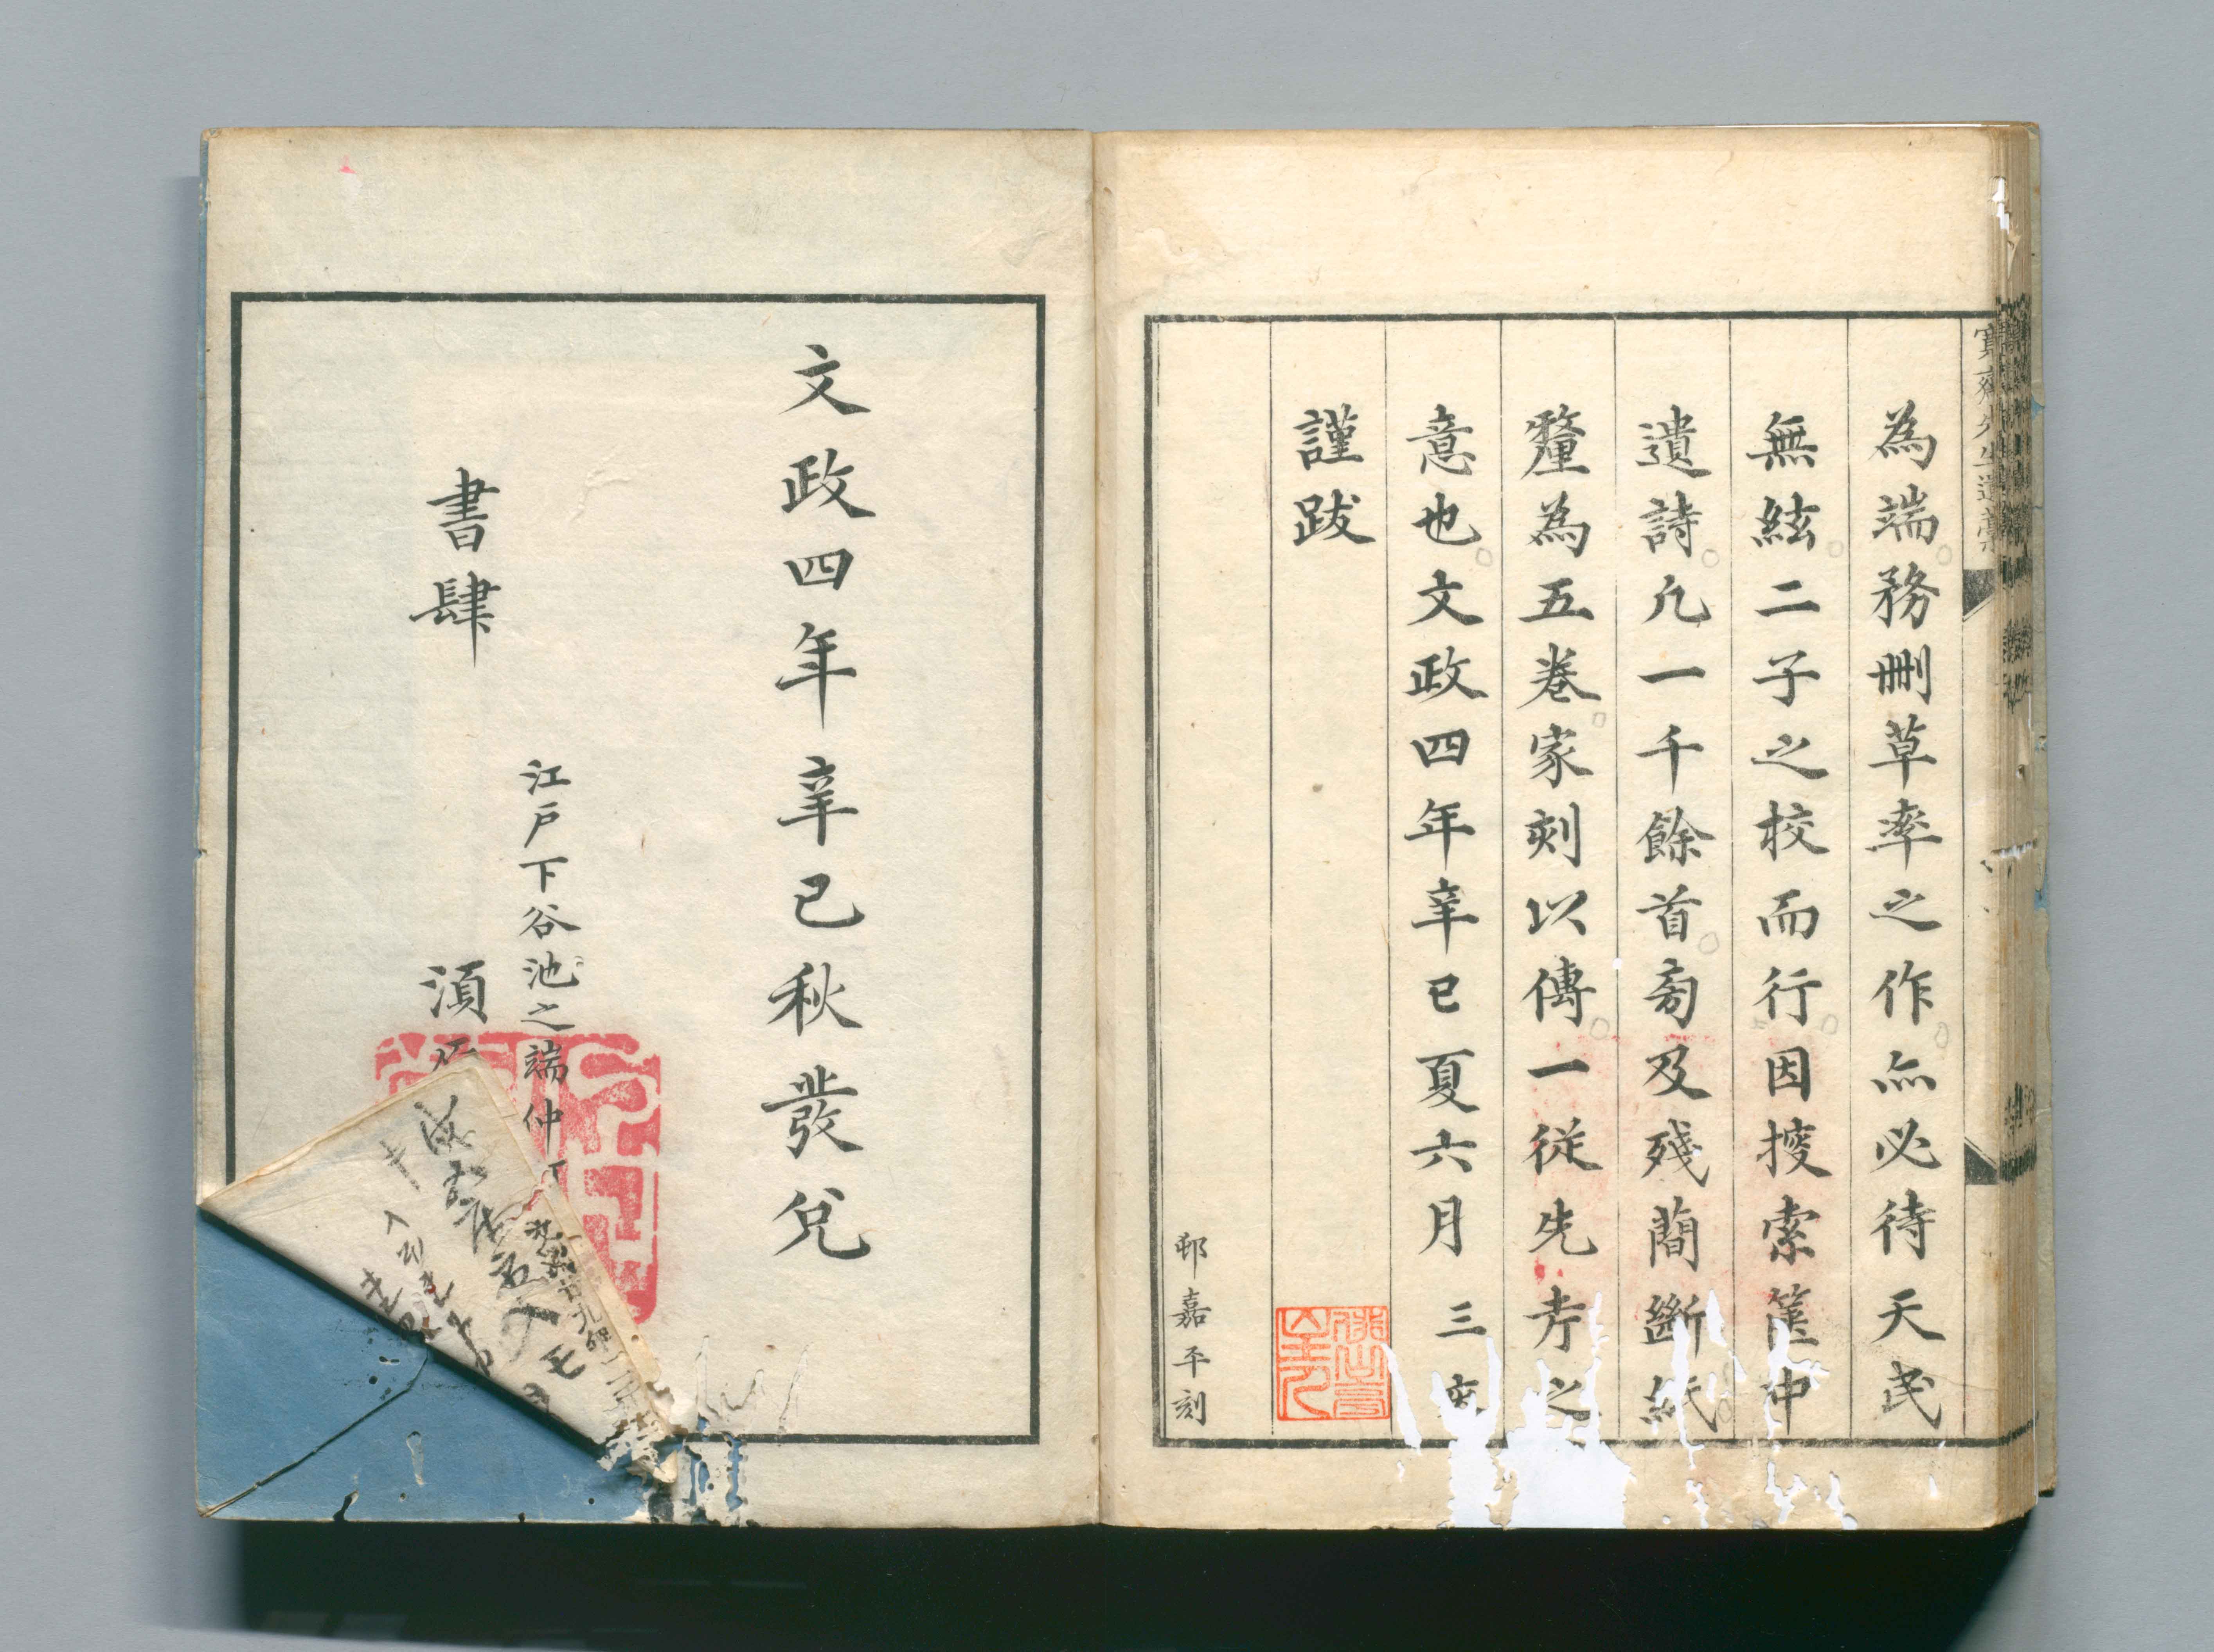 為端務刪草率之作亦必待天民
無絃二子之校而行因搜索篋中
遺詩凡一千餘首旁及殘簡斷紙
釐為五巻家刻以傳一從先考之
意也文政四年辛巳夏六月三
謹跋
邨嘉平刻
文政四年辛巳秋發兌
江戸下谷池之端仲
書肆
須